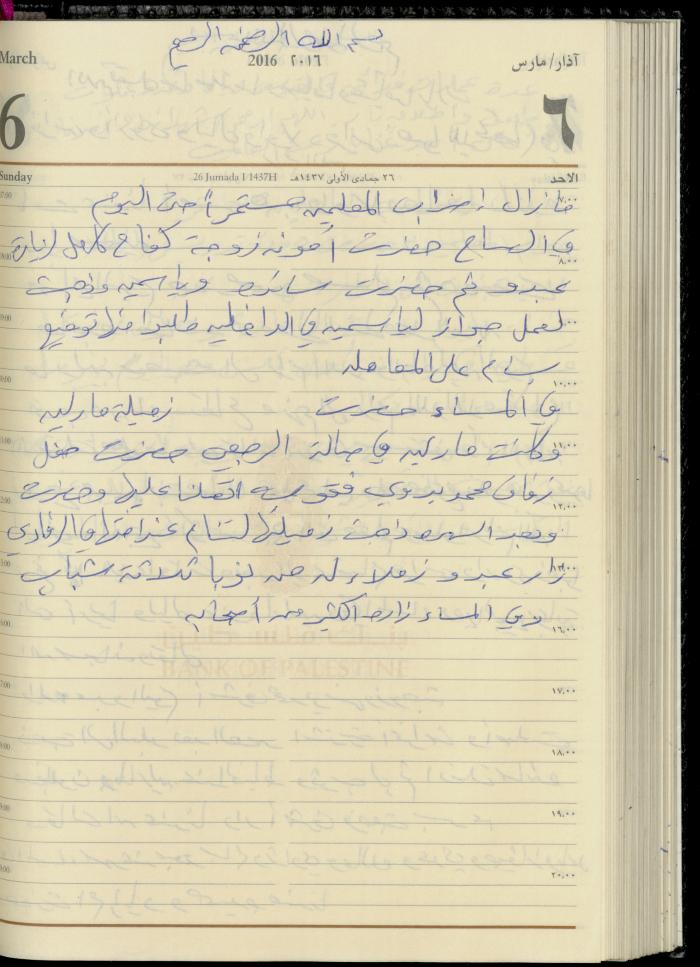 بسم الله الرحمن الرحيم
March
2016 ٢٠١٦
آذار/مارس
6
٦
Sunday
26 Jumada I 1437H
٢٦ جمادى الأولى ١٤٣٧هـ
الاحد
ما زال إضراب المعلمين مستمراً حتى اليوم
في الصباح حضرت آمونه زوجة كفاح كامل لزيارة
عبدو ثم حضرت سائده وياسمين وذهبت
لعمل جواز لياسمين في الداخليه طلبوا منها توقيع
بسام على المعامله
في المساء حضرت زميلة مارلين
وكانت مارلين في صالة حضرت حفل
زفاف محمد بدوي اتصلنا عليها وحضرت
وبعد السهره ذهبت زميلتها لتنام عند اختها في
زار عبدو زملاء له من نوبا ثلاثة شباب
وفي المساء زاره اكثر من أصحابه
BANK OF PALESTINE
٧:٠٠
٨:٠٠
١٠:٠٠
١١:٠٠
١٢:٠٠
١٦:٠٠
١٧:٠٠
١٨:٠٠
١٩:٠٠
٢٠:٠٠